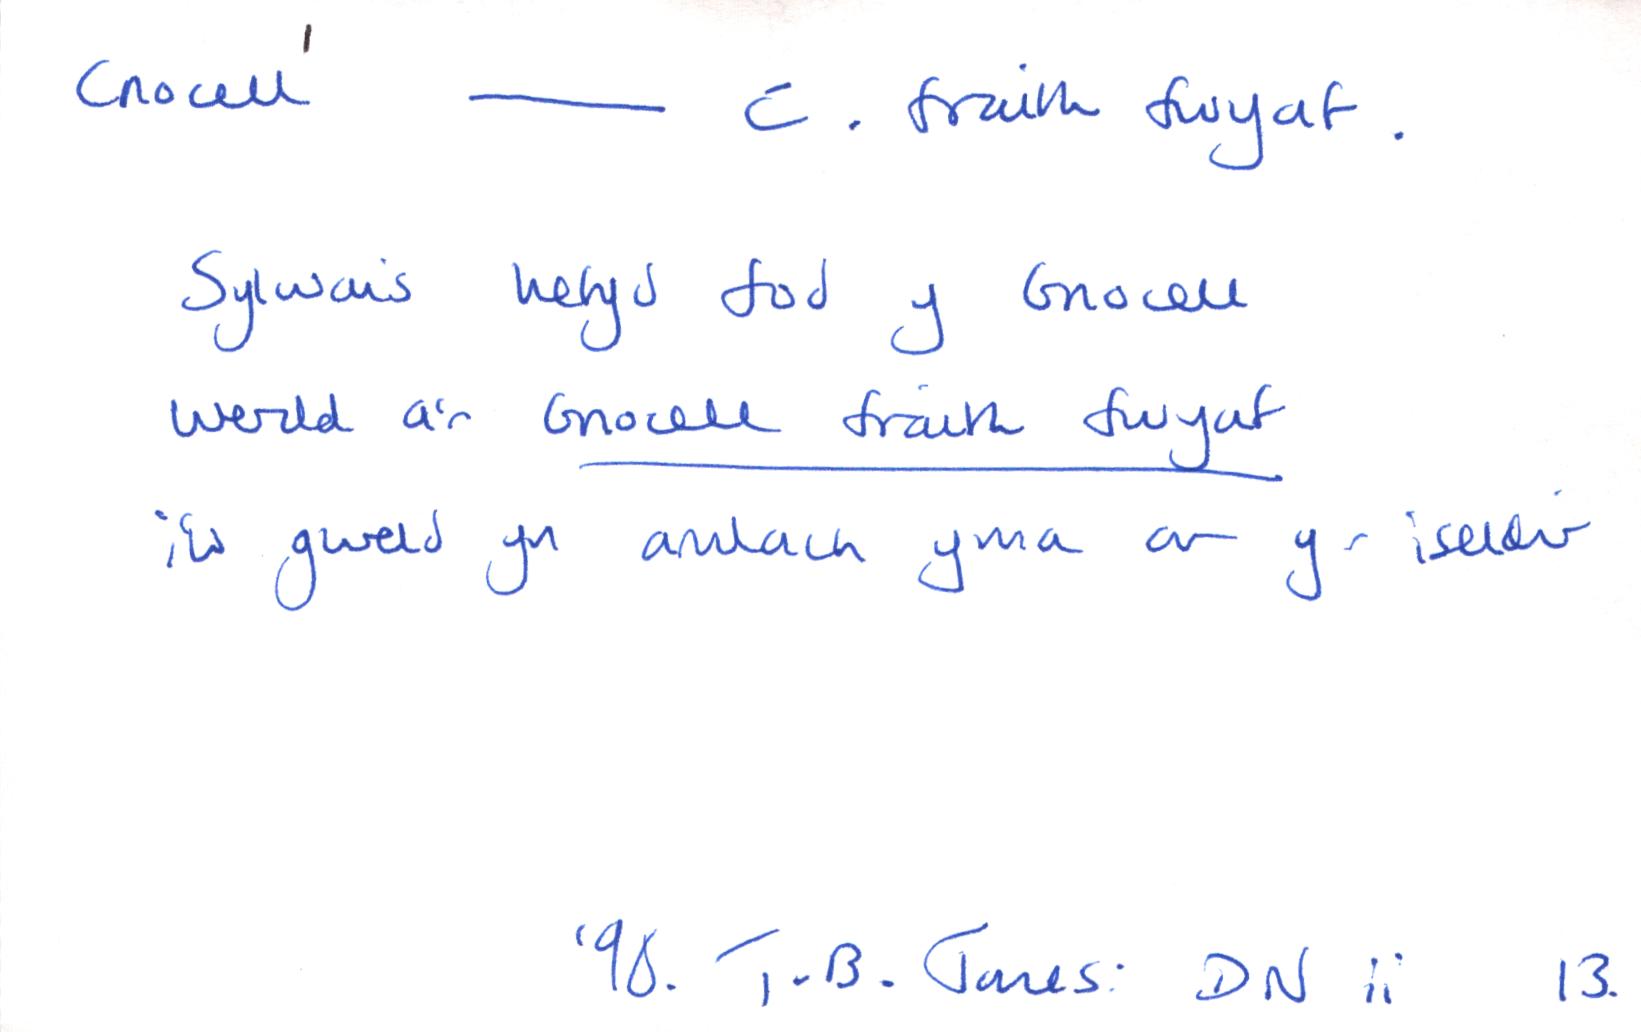 Cnocell' — C. fraith fwyaf.
Sylwais hefyd fod y Gnocell
werdd a'r Gnocell fraith fwyaf
i'w gweld yn amlach yma ar yr iseldir
'98. T.B. Jones: DN ii 13.